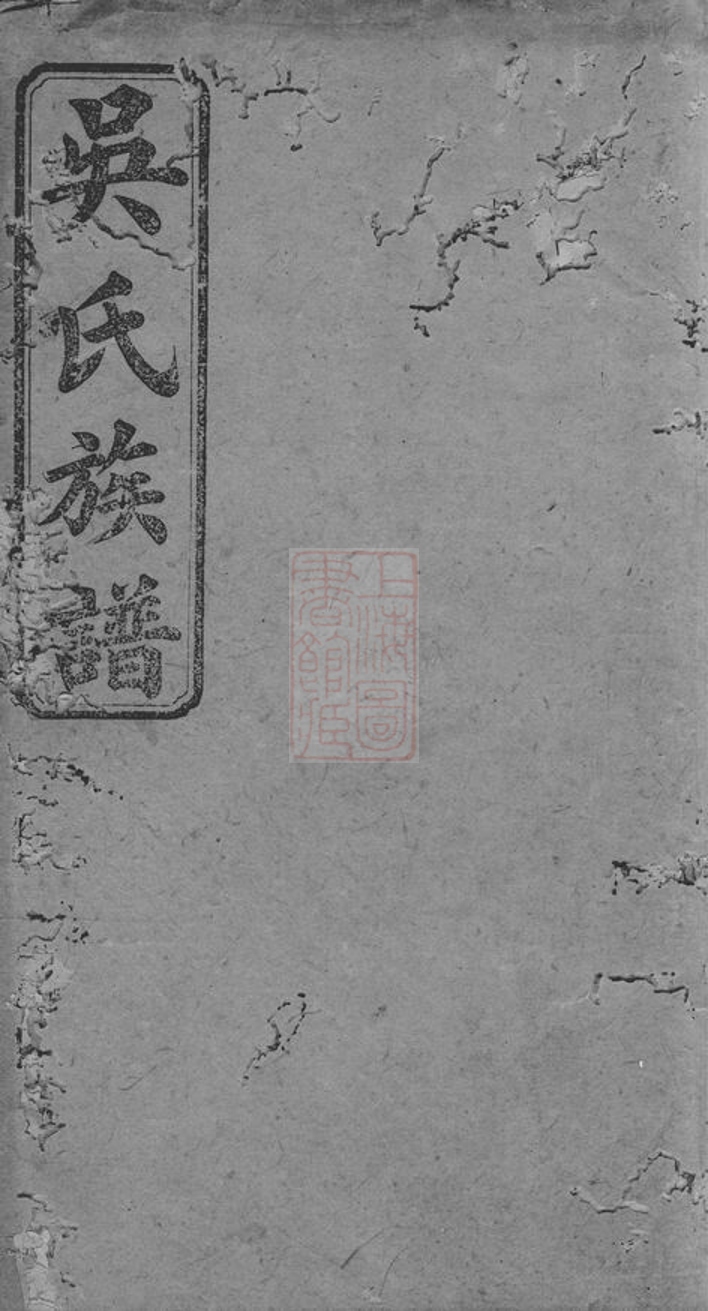 吳氏族譜
上海圖
書館藏